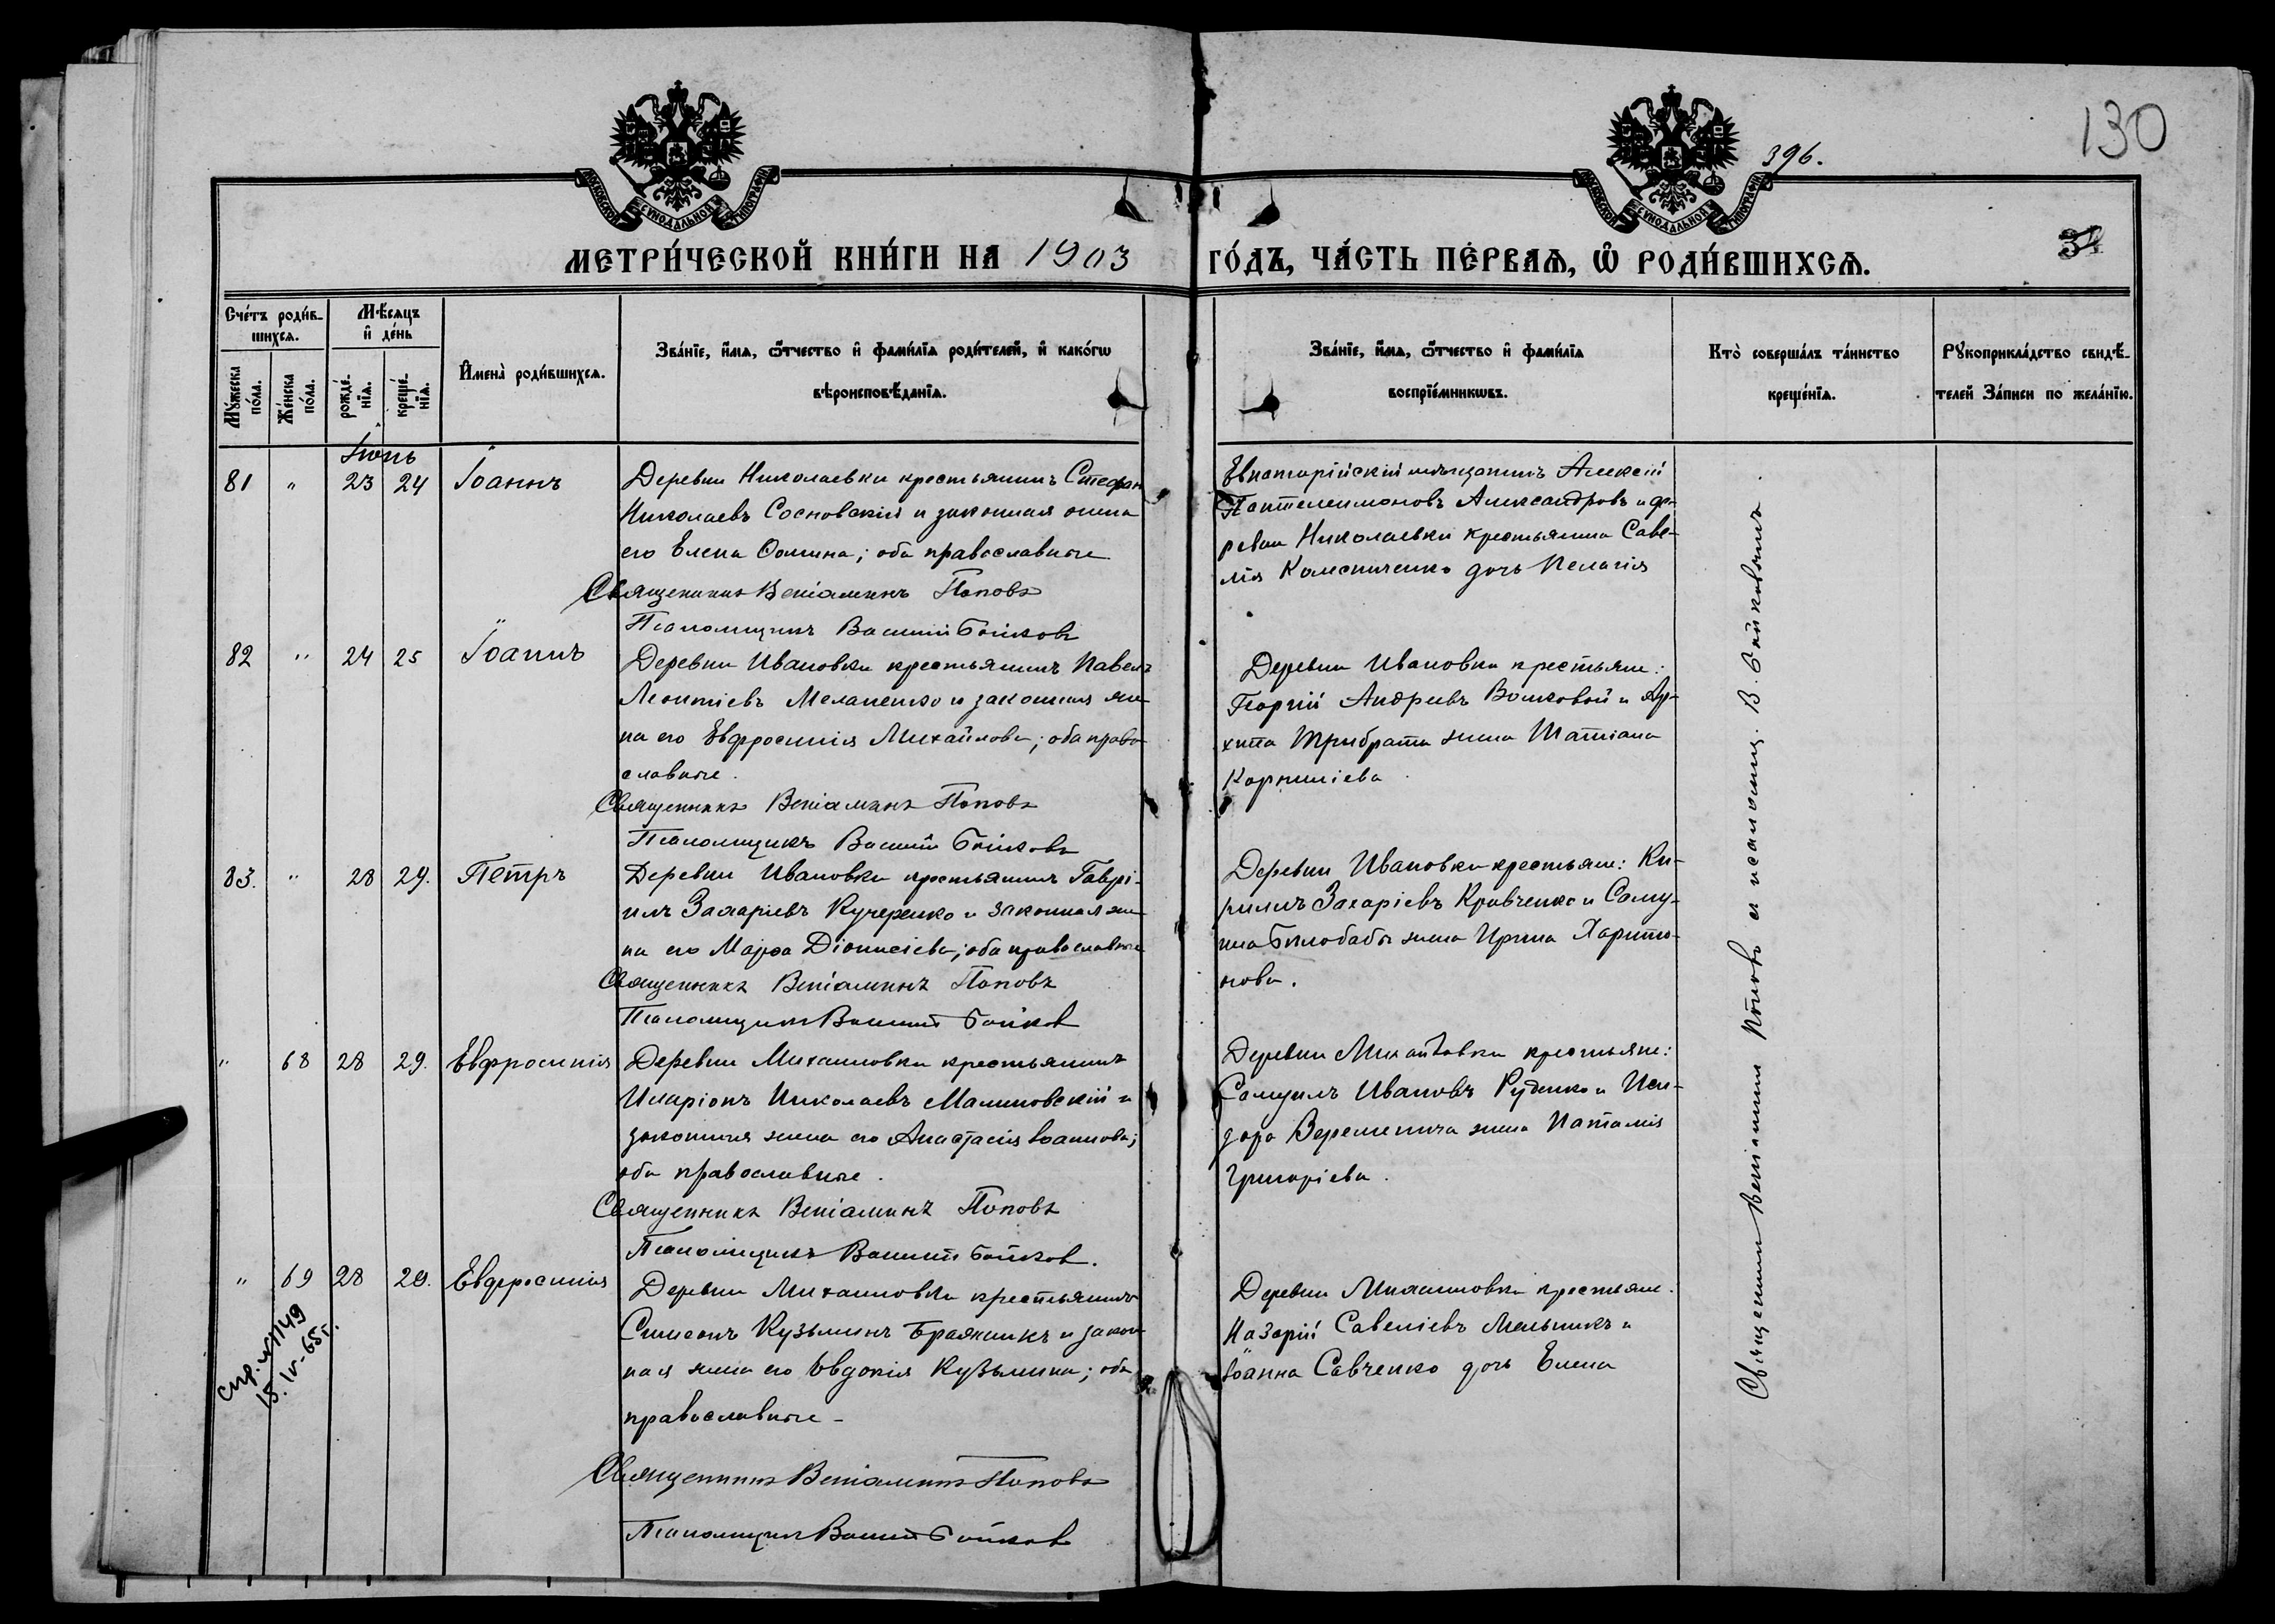 130
396.
МОСКОВСКОЙ СѴНОДАЛЬНОЙ ТИПОГРАФІИ
МОСКОВСКОЙ СѴНОДАЛЬНОЙ ТИПОГРАФІИ
МЕТРИ́ЧЕСКОЙ КНИ́ГИ НА 1903
ГО́ДЪ, ЧА́СТЬ ПЕ́РВАѦ, Ѡ҆ РОДИ́ВШИХСѦ.
Сче́тъ роди́в-
шихсѧ.
Мꙋ́жеска по́ла.
Же́нска по́ла.
Мѣ́сѧцъ
и҆ де́нь
рожде́-нїѧ.
креще́-нїѧ.
И҆мена̀ роди́вшихсѧ.
Зва́нїе, и҆́мѧ, ѻ҆́тчество и҆ фами́лїѧ роди́телей, и҆ како́гѡ
вѣроисповѣ́данїѧ.
Зва́нїе, и҆́мѧ, ѻ҆́тчество и҆ фами́лїѧ
воспрїе́мникѡвъ.
Кто̀ соверша́лъ та́инство
креще́нїѧ.
Рꙋкоприкла́дство свидѣ́-
телей За́писи по жела́нїю.
Іюнь
81 " 23 24 Іоаннъ
Деревни Николаевки крестьянинъ Стефан
Николаевъ Сосновскій и законная жена
его Елена Фомина; оба православные
Священникъ Веніаминъ Поповъ
Псаломщикъ Василій Бойковъ
Евпаторійскій мѣщанинъ Алексій
Пантелеимоновъ Александровъ и де-
ревни Николаевки крестьянина Саве-
лія Колесниченко дочь Пелагія
82 " 24 25 Іоаннъ
Деревни Ивановки крестьянинъ Павелъ
Леонтіевъ Меланенко и законная же-
на его Евфросинія Михайлова; оба право-
славные.
Священникъ Веніаминъ Поповъ
Псаломщикъ Василій Бойковъ
Деревни Ивановки крестьяне:
Георгій Андреевъ Волковой и Ар-
хипа Трибрата жена Татіана
Корниліева
83. " 28 29. Петръ
Деревни Ивановки крестьянинъ Гаврі-
илъ Захаріевъ Кучеренко и законная же-
на его Марѳа Діонисіева; оба православные
Священникъ Веніаминъ Поповъ
Псаломщикъ Василій Бойков
Деревни Ивановки крестьяне: Ки-
риллъ Захаріевъ Кравченко и Саму-
ила Билобабы жена Ирина Харито-
нова.
" 68 28 29. Евфросинія
Деревни Михайловки крестьянинъ
Иларіонъ Николаевъ Малиновскій и
законная жена его Анастасія Іоаннова;
оба православные.
Священникъ Веніаминъ Поповъ
Псаломщикъ Василій Бойков.
Деревни Михайловки крестьяне:
Самуилъ Ивановъ Руденко и Иси-
дора Веремеича жена Наталія
Григоріева.
" 69 28 29. Евфросинія
Деревни Михайловки крестьянинъ
Симеонъ Кузьминъ Бражникъ и закон-
ная жена его Евдокія Кузьмина; оба
православные -
Священникъ Веніаминъ Поповъ
Псаломщикъ Василій Бойков
Деревни Михайловки крестьяне.
Назарій Савеліевъ Мельникъ и
Іоанна Савченко дочь Елена
Священник Веніамин Поповъ съ псаломщ. В. Бойковымъ.
спр. №1149
15.IV-65г.